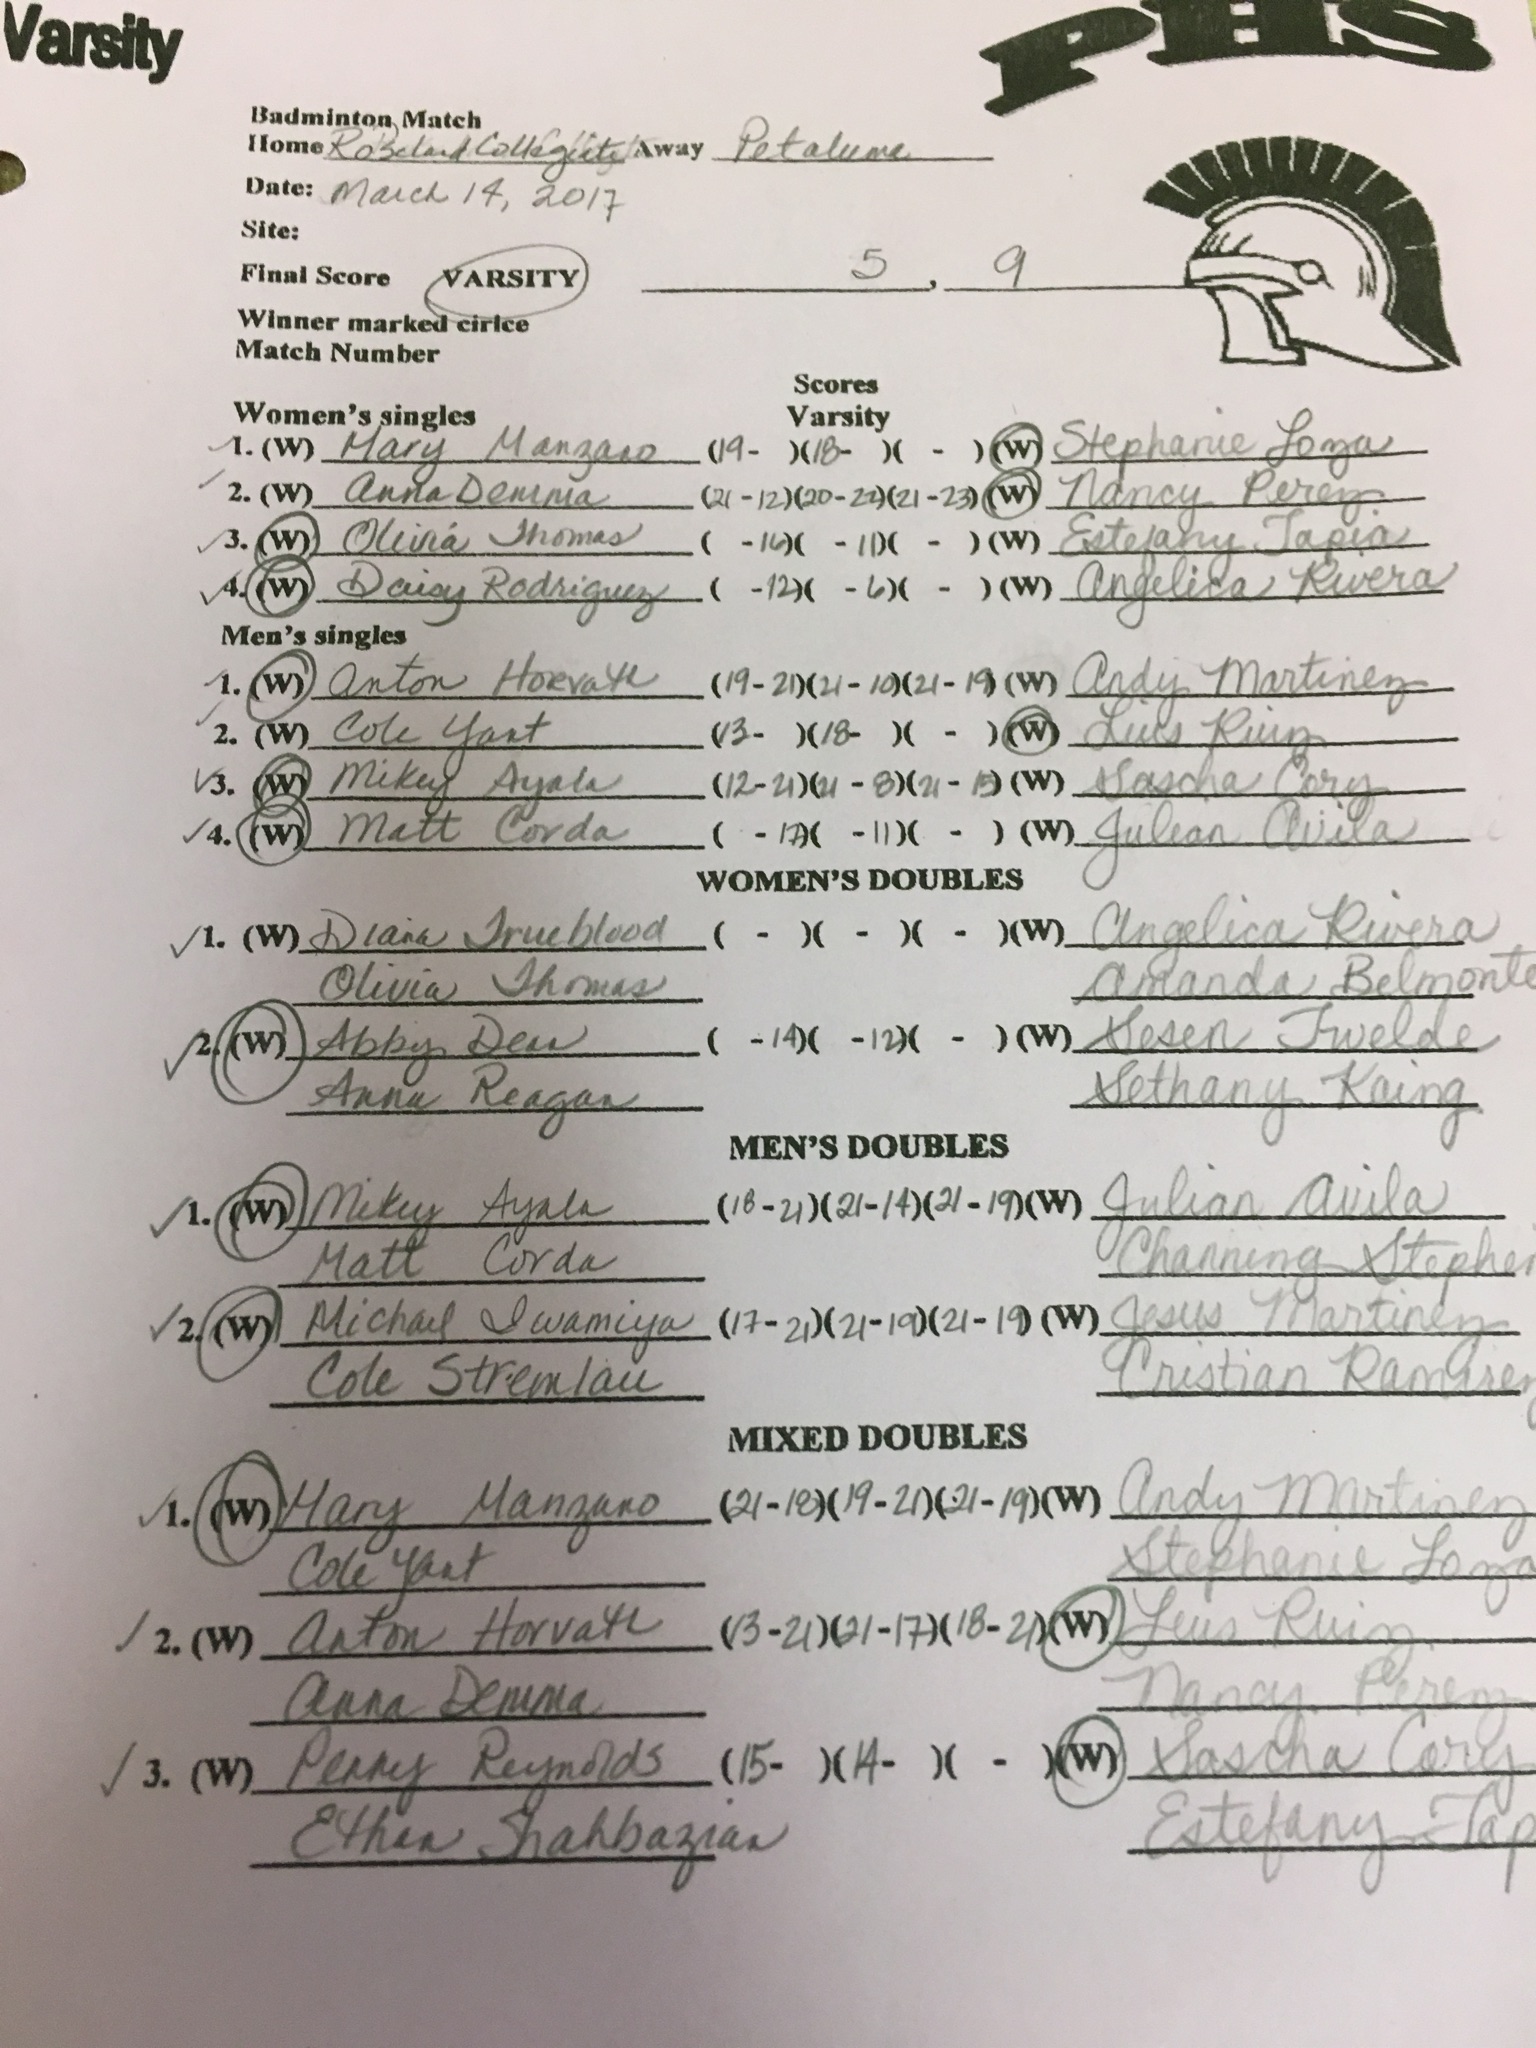 Varsity
PHS
Badminton Match
Home Roseland Collegiate Away Petaluma
Date: March 14, 2017
Site:
Final Score VARSITY 5, 9
Winner marked cirlce
Match Number
Scores
Women's singles Varsity
1. (W) Mary Manzano (19- )(18- )( - ) (W) Stephanie Loza
2. (W) Anna Demma (21-12)(20-22)(21-23) (W) Nancy Perez
3. (W) Olivia Thomas ( -16)( -11)( - ) (W) Estefany Tapia
4. (W) Daisy Rodriguez ( -12)( -6)( - ) (W) Angelica Rivera
Men's singles
1. (W) Anton Horvath (19-21)(21-10)(21-19) (W) Andy Martinez
2. (W) Cole Yant (13- )(18- )( - ) (W) Luis Ruiz
3. (W) Mikey Ayala (12-21)(21-8)(21-15) (W) Sascha Cory
4. (W) Matt Corda ( -17)( -11)( - ) (W) Julian Avila
WOMEN'S DOUBLES
1. (W) Diana Trueblood ( - )( - )( - )(W) Angelica Rivera
Olivia Thomas Amanda Belmonte
2. (W) Abby Dear ( -14)( -12)( - ) (W) Sesen Twelde
Anna Reagan Sethany Kaing
MEN'S DOUBLES
1. (W) Mikey Ayala (18-21)(21-14)(21-19)(W) Julian Avila
Matt Corda Channing Stephen
2. (W) Michael Iwamiya (17-21)(21-19)(21-19) (W) Jesus Martinez
Cole Stremlau Cristian Ramirez
MIXED DOUBLES
1. (W) Mary Manzano (21-18)(19-21)(21-19)(W) Andy Martinez
Cole Yant Stephanie Loza
2. (W) Anton Horvath (13-21)(21-17)(18-21)(W) Luis Ruiz
Anna Demma Nancy Perez
3. (W) Penny Reynolds (15- )(14- )( - )(W) Sascha Cory
Ethan Shahbazian Estefany Tap